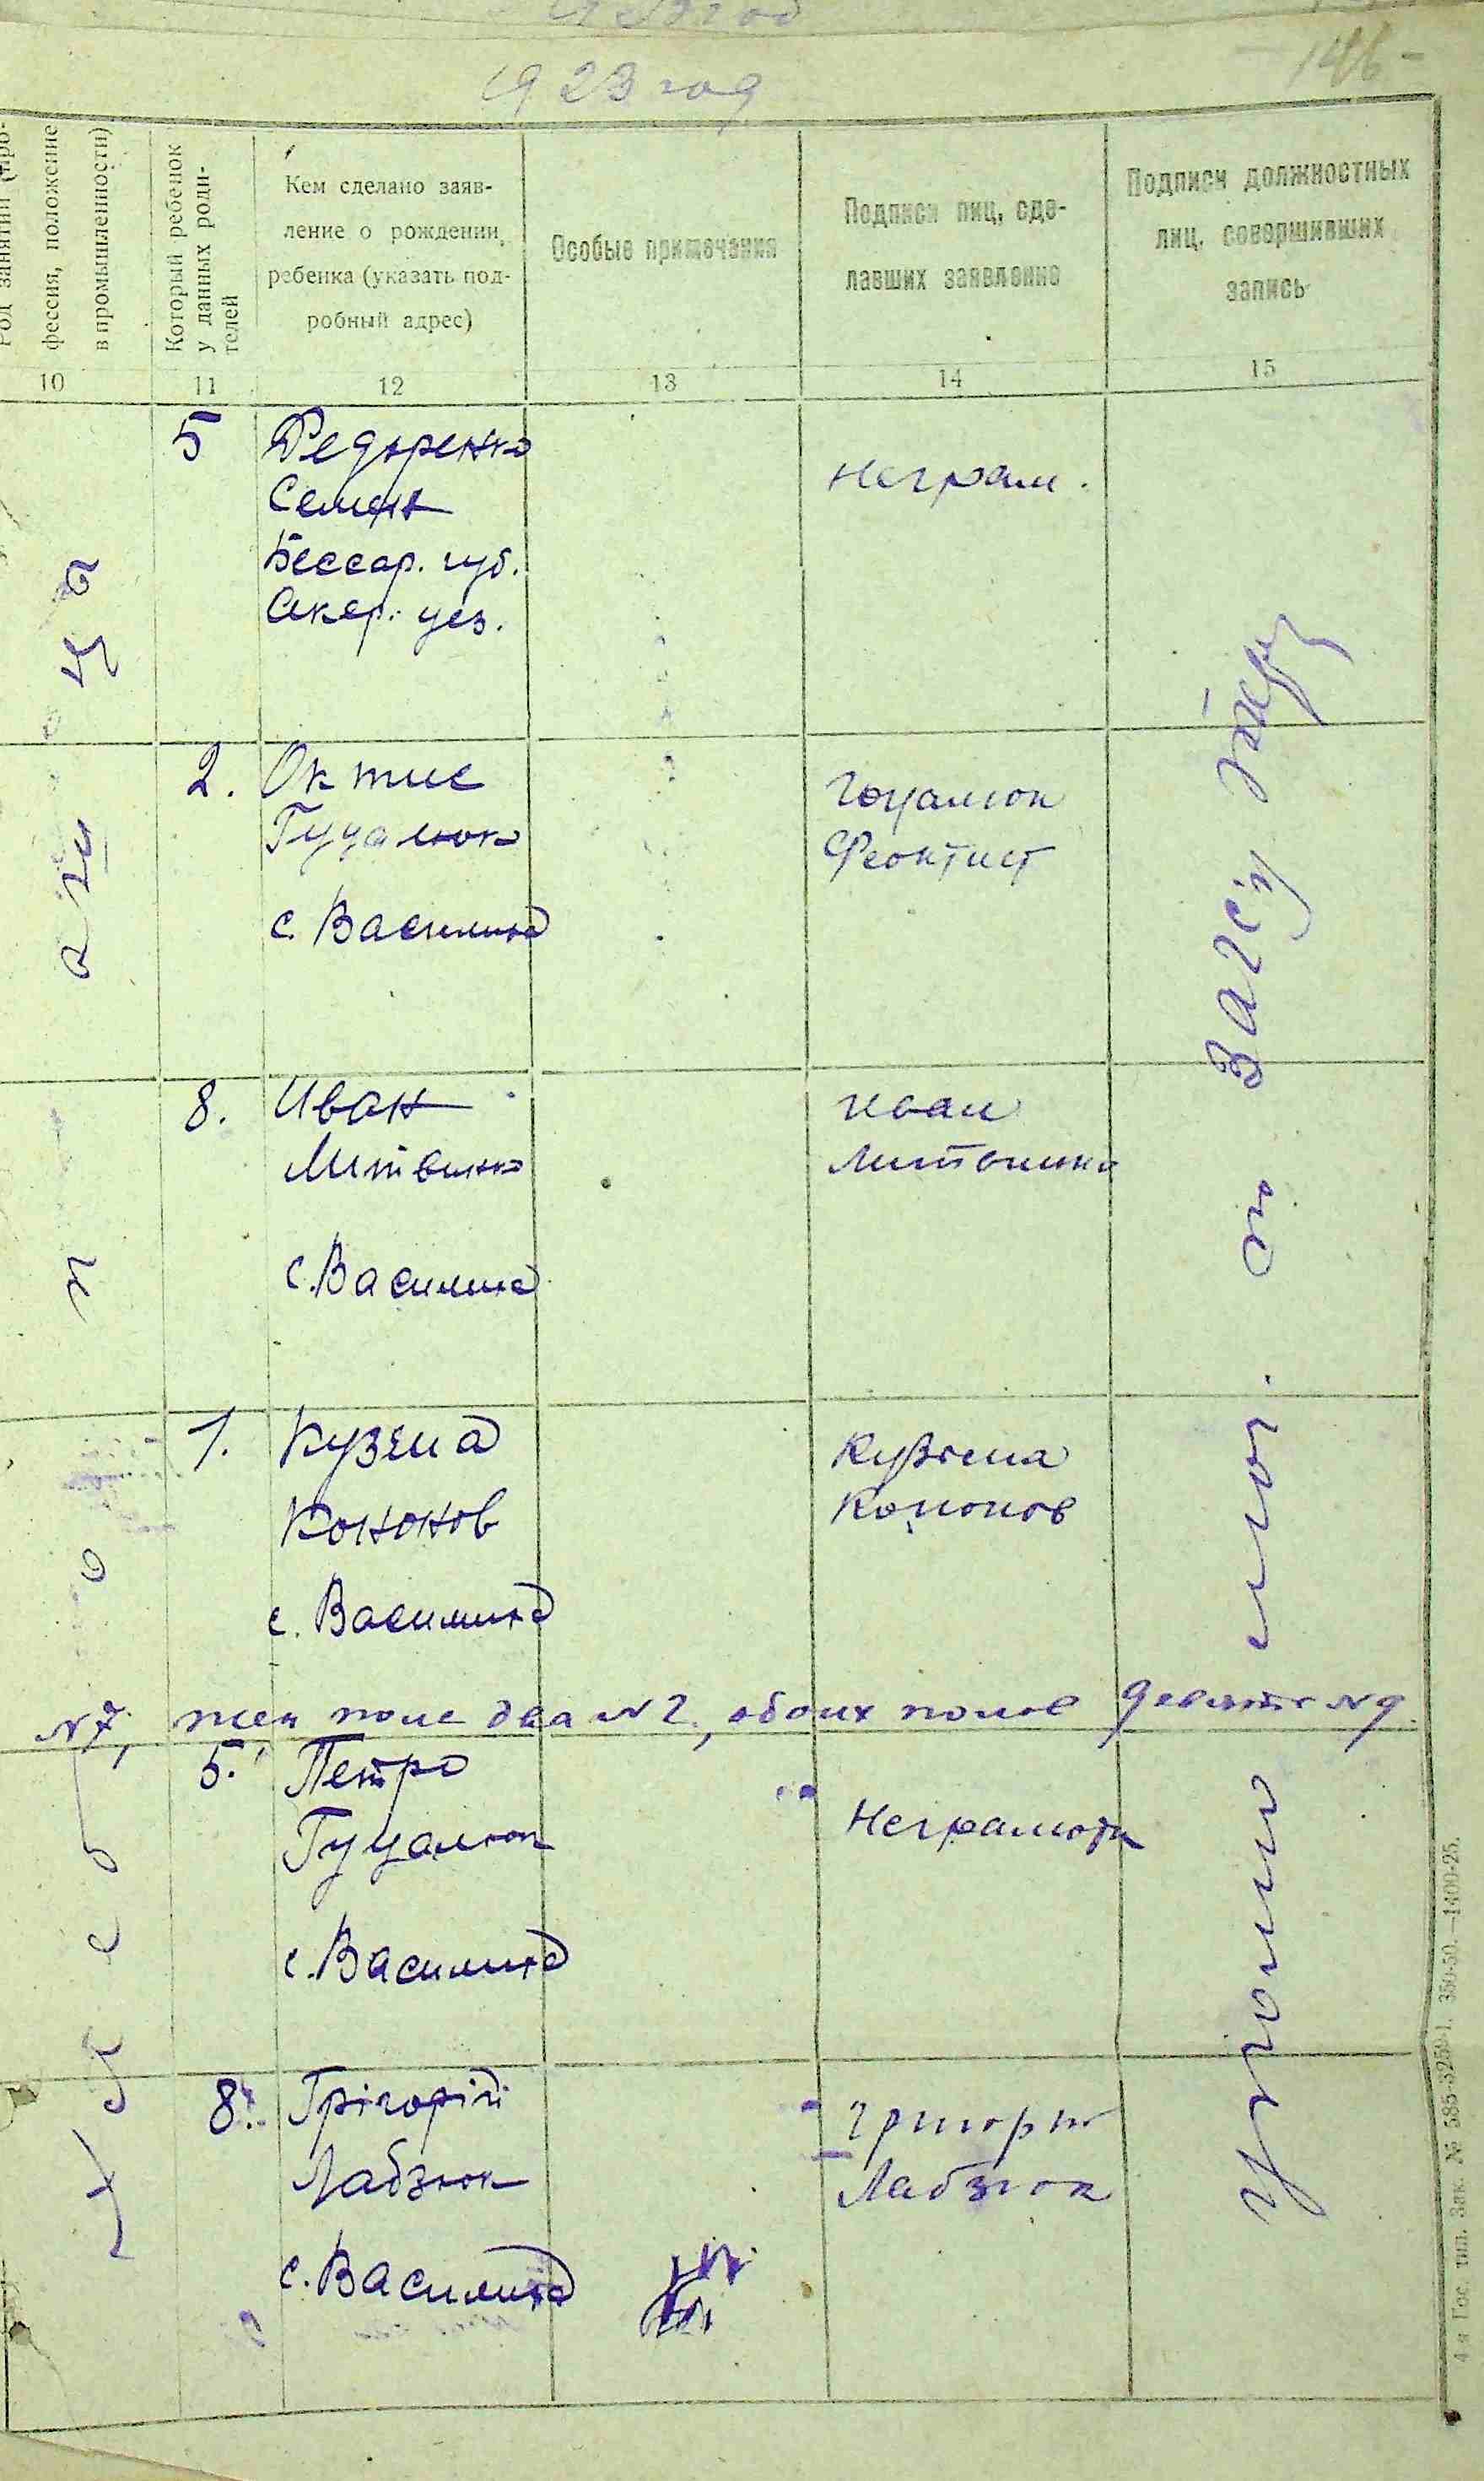 1923 год
146
Род занятий (про-
фессия, положение
в промышленности)
Который ребенок
у данных роди-
телей
Кем сделано заяв-
ление о рождении
ребенка (указать под-
робный адрес)
Особые примечания
Подписи лиц, сде-
лавших заявление
Подписи должностных
лиц, совершивших
запись
10 11 12 13 14 15
5 Федоренко
Семен
Бессар. губ.
Акер. уез.
Неграм.
2. Октис
Гуцалюк
с. Василина
Гоцалюк
Феоктист
8. Иван
Литвинко
с. Василина
Иван
Литвинко
1. Кузема
Кононов
с. Василина
Кузьма
Кононов
N7, жен поле два N2, обоих полов девять N9.
5. Петро
Гуцалюк
с. Василина
Неграмотн
8. Грігорій
Лабзюк
с. Василина
Григорий
Лабзюк
Уполном. по Загсу
4-я Гос. тип. Зак. № 585-3259-1. 350-50.—1400-25.